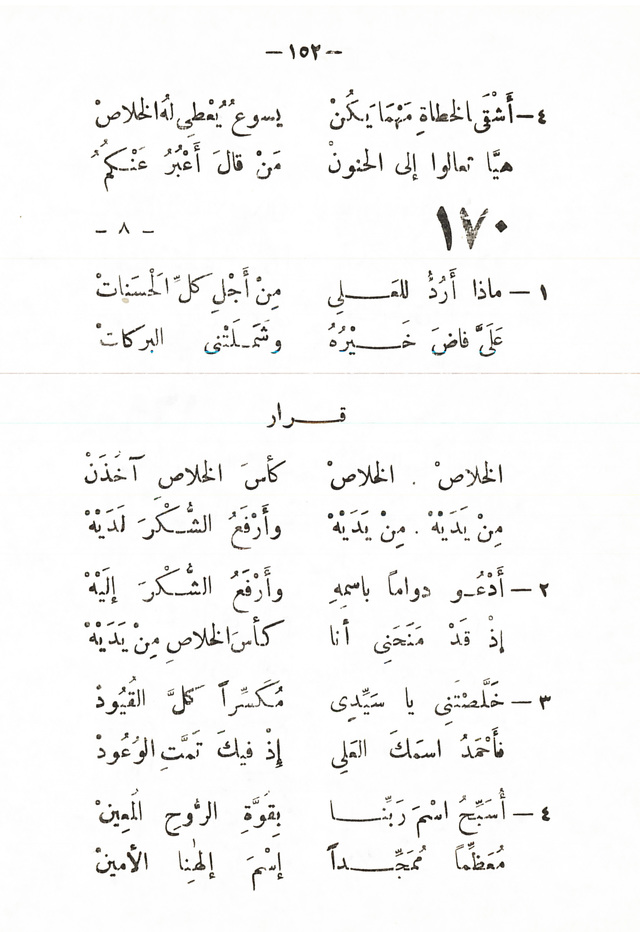 — ١٥٢ —
٤ — أَشْقَى الخطاةِ مَهْمَا يَكُنْ يسوعُ يُعْطِي لهُ الخلاصْ
هيَّا تعالوا إلى الحنونْ مَنْ قالَ أَعْبُرُ عَنْكمُ
١٧٠ — ٨ —
١ — ماذا أَرُدُّ للعَلي مِنْ أَجْلِ كلِّ الْحَسَناتْ
عَلَيَّ فاضَ خَيْرُهُ وشَمَلَتْني البركاتْ
قرار
الخلاصْ . الخلاصْ كأسَ الخلاصِ آخُذَنْ
مِنْ يَدَيْهْ . مِنْ يَدَيْهْ وأَرْفَعُ الشُّكْرَ لَدَيْهْ
٢ — أَدْعُو دواماً باسمِهِ وأَرْفَعُ الشُّكْرَ إلَيْهْ
إذْ قَدْ مَنَحَني أنا كأسَ الخلاصِ مِنْ يَدَيْهْ
٣ — خَلَّصْتَني يا سَيِّدِي مُكَسِّراً كُلَّ القُيُودْ
فَأَحْمَدُ اسمَكَ العَلي إذْ فيكَ تَمَّتِ الوُعُودْ
٤ — أُسَبِّحُ اسْمَ رَبِّنا بِقوَّةِ الرُّوحِ المُعِينْ
مُعَظِّماً مُمَجِّداً إسْمَ إلهِنا الأمينْ